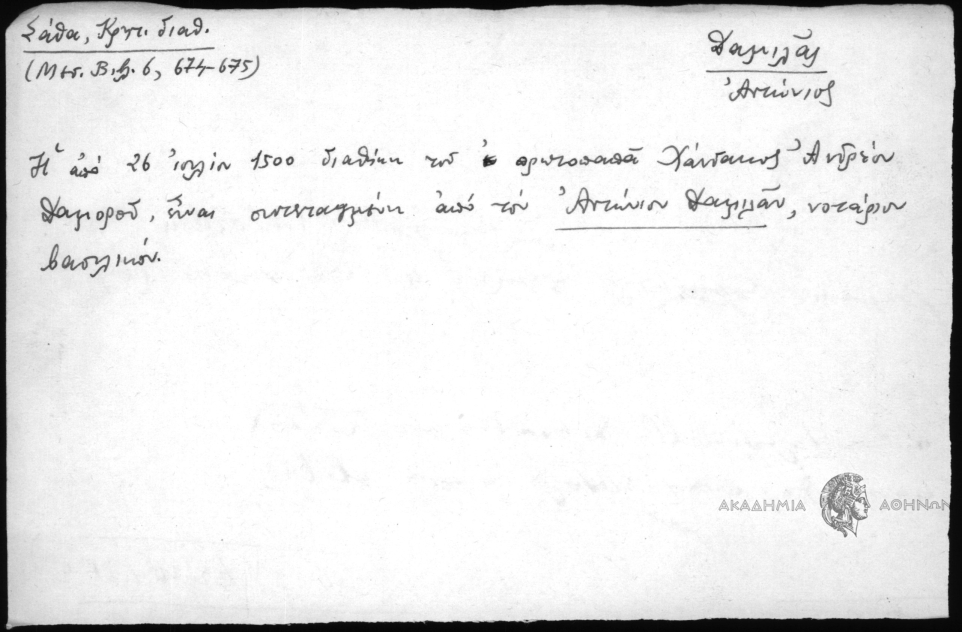 Σάθα, Κρητ. διαθ.
(Μεσ. Βιβλ. 6, 674-675)
Δαμιλᾶς
Ἀντώνιος
Ἡ ἀπό 26 ἰουλίου 1500 διαθήκη τοῦ πρωτοπαπᾶ Χάνδακος Ἀνδρέου
Δαμοροῦ, εἶναι συντεταγμένη ἀπό τόν Ἀντώνιον Δαμιλᾶν, νοτάριον
βασιλικόν.
ΑΚΑΔΗΜΙΑ ΑΘΗΝΩΝ